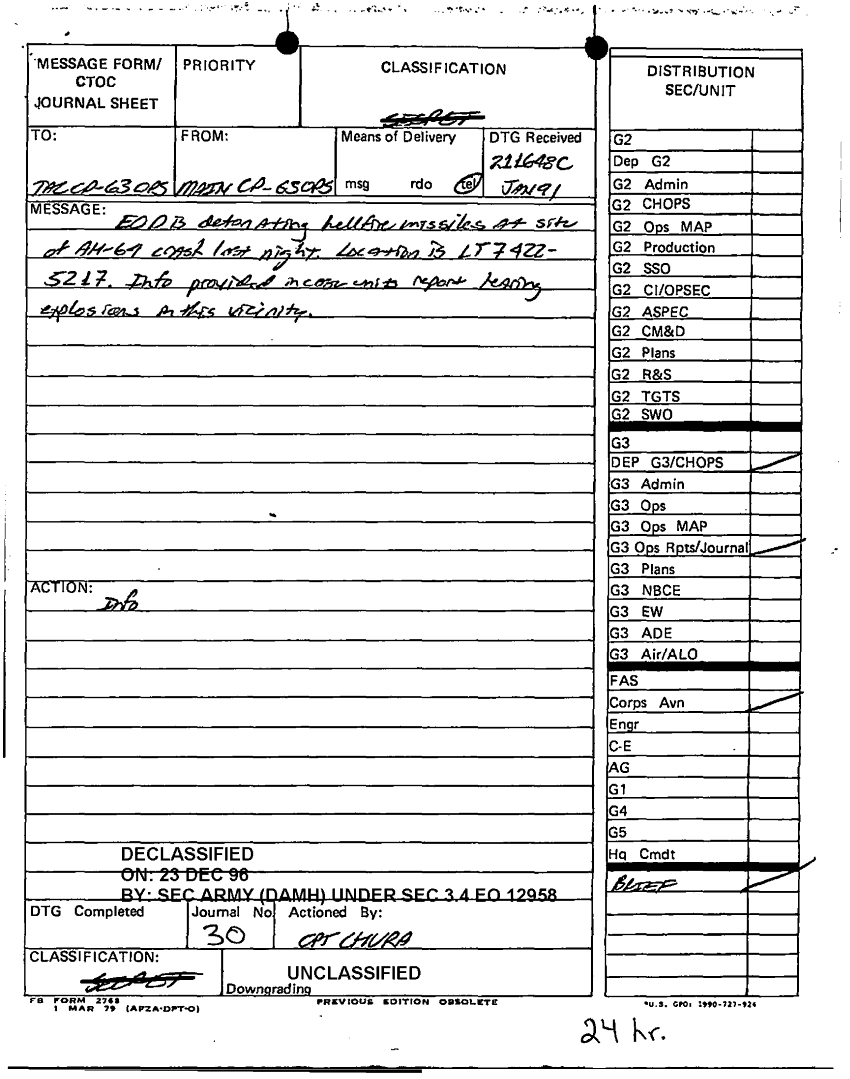 MESSAGE FORM/
CTOC
JOURNAL SHEET
PRIORITY
CLASSIFICATION
SECRET
TO:
TAC CP-G3 OPS
FROM:
MAIN CP-G3 OPS
Means of Delivery
msg rdo tel
DTG Received
211648C
JAN 91
MESSAGE:
EOD is detonating hellfire missiles at site
of AH-64 crash last night. Location is LT 7422-
5217. Info provided incase units report hearing
explosions in this vicinity.
ACTION:
Info
DECLASSIFIED
ON: 23 DEC 96
BY: SEC ARMY (DAMH) UNDER SEC 3.4 EO 12958
DTG Completed
Journal No
30
Actioned By:
CPT CHURA
CLASSIFICATION:
SECRET
UNCLASSIFIED
Downgrading
FB FORM 2768
1 MAR 79 (AFZA-DPT-O)
PREVIOUS EDITION OBSOLETE
DISTRIBUTION
SEC/UNIT
G2
Dep G2
G2 Admin
G2 CHOPS
G2 Ops MAP
G2 Production
G2 SSO
G2 CI/OPSEC
G2 ASPEC
G2 CM&D
G2 Plans
G2 R&S
G2 TGTS
G2 SWO
G3
DEP G3/CHOPS
G3 Admin
G3 Ops
G3 Ops MAP
G3 Ops Rpts/Journal
G3 Plans
G3 NBCE
G3 EW
G3 ADE
G3 Air/ALO
FAS
Corps Avn
Engr
C-E
AG
G1
G4
G5
Hq Cmdt
BRIEF
*U.S. GPO: 1990-727-926
24 hr.